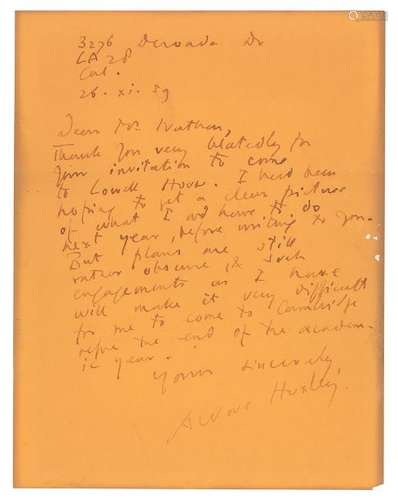 3276 Deronda Dr
LA 28
Cal.
26. xi. 59
Dear Mr Nathan,
Thank you very belatedly for
your invitation to come
to Lowell House. I had been
hoping to get a clear picture
of what I wd have to do
next year, before writing to you.
But plans are still
rather obscure, & such
engagements as I have
will make it very difficult
for me to come to Cambridge
before the end of the academ-
ic year.
Yours sincerely
Aldous Huxley